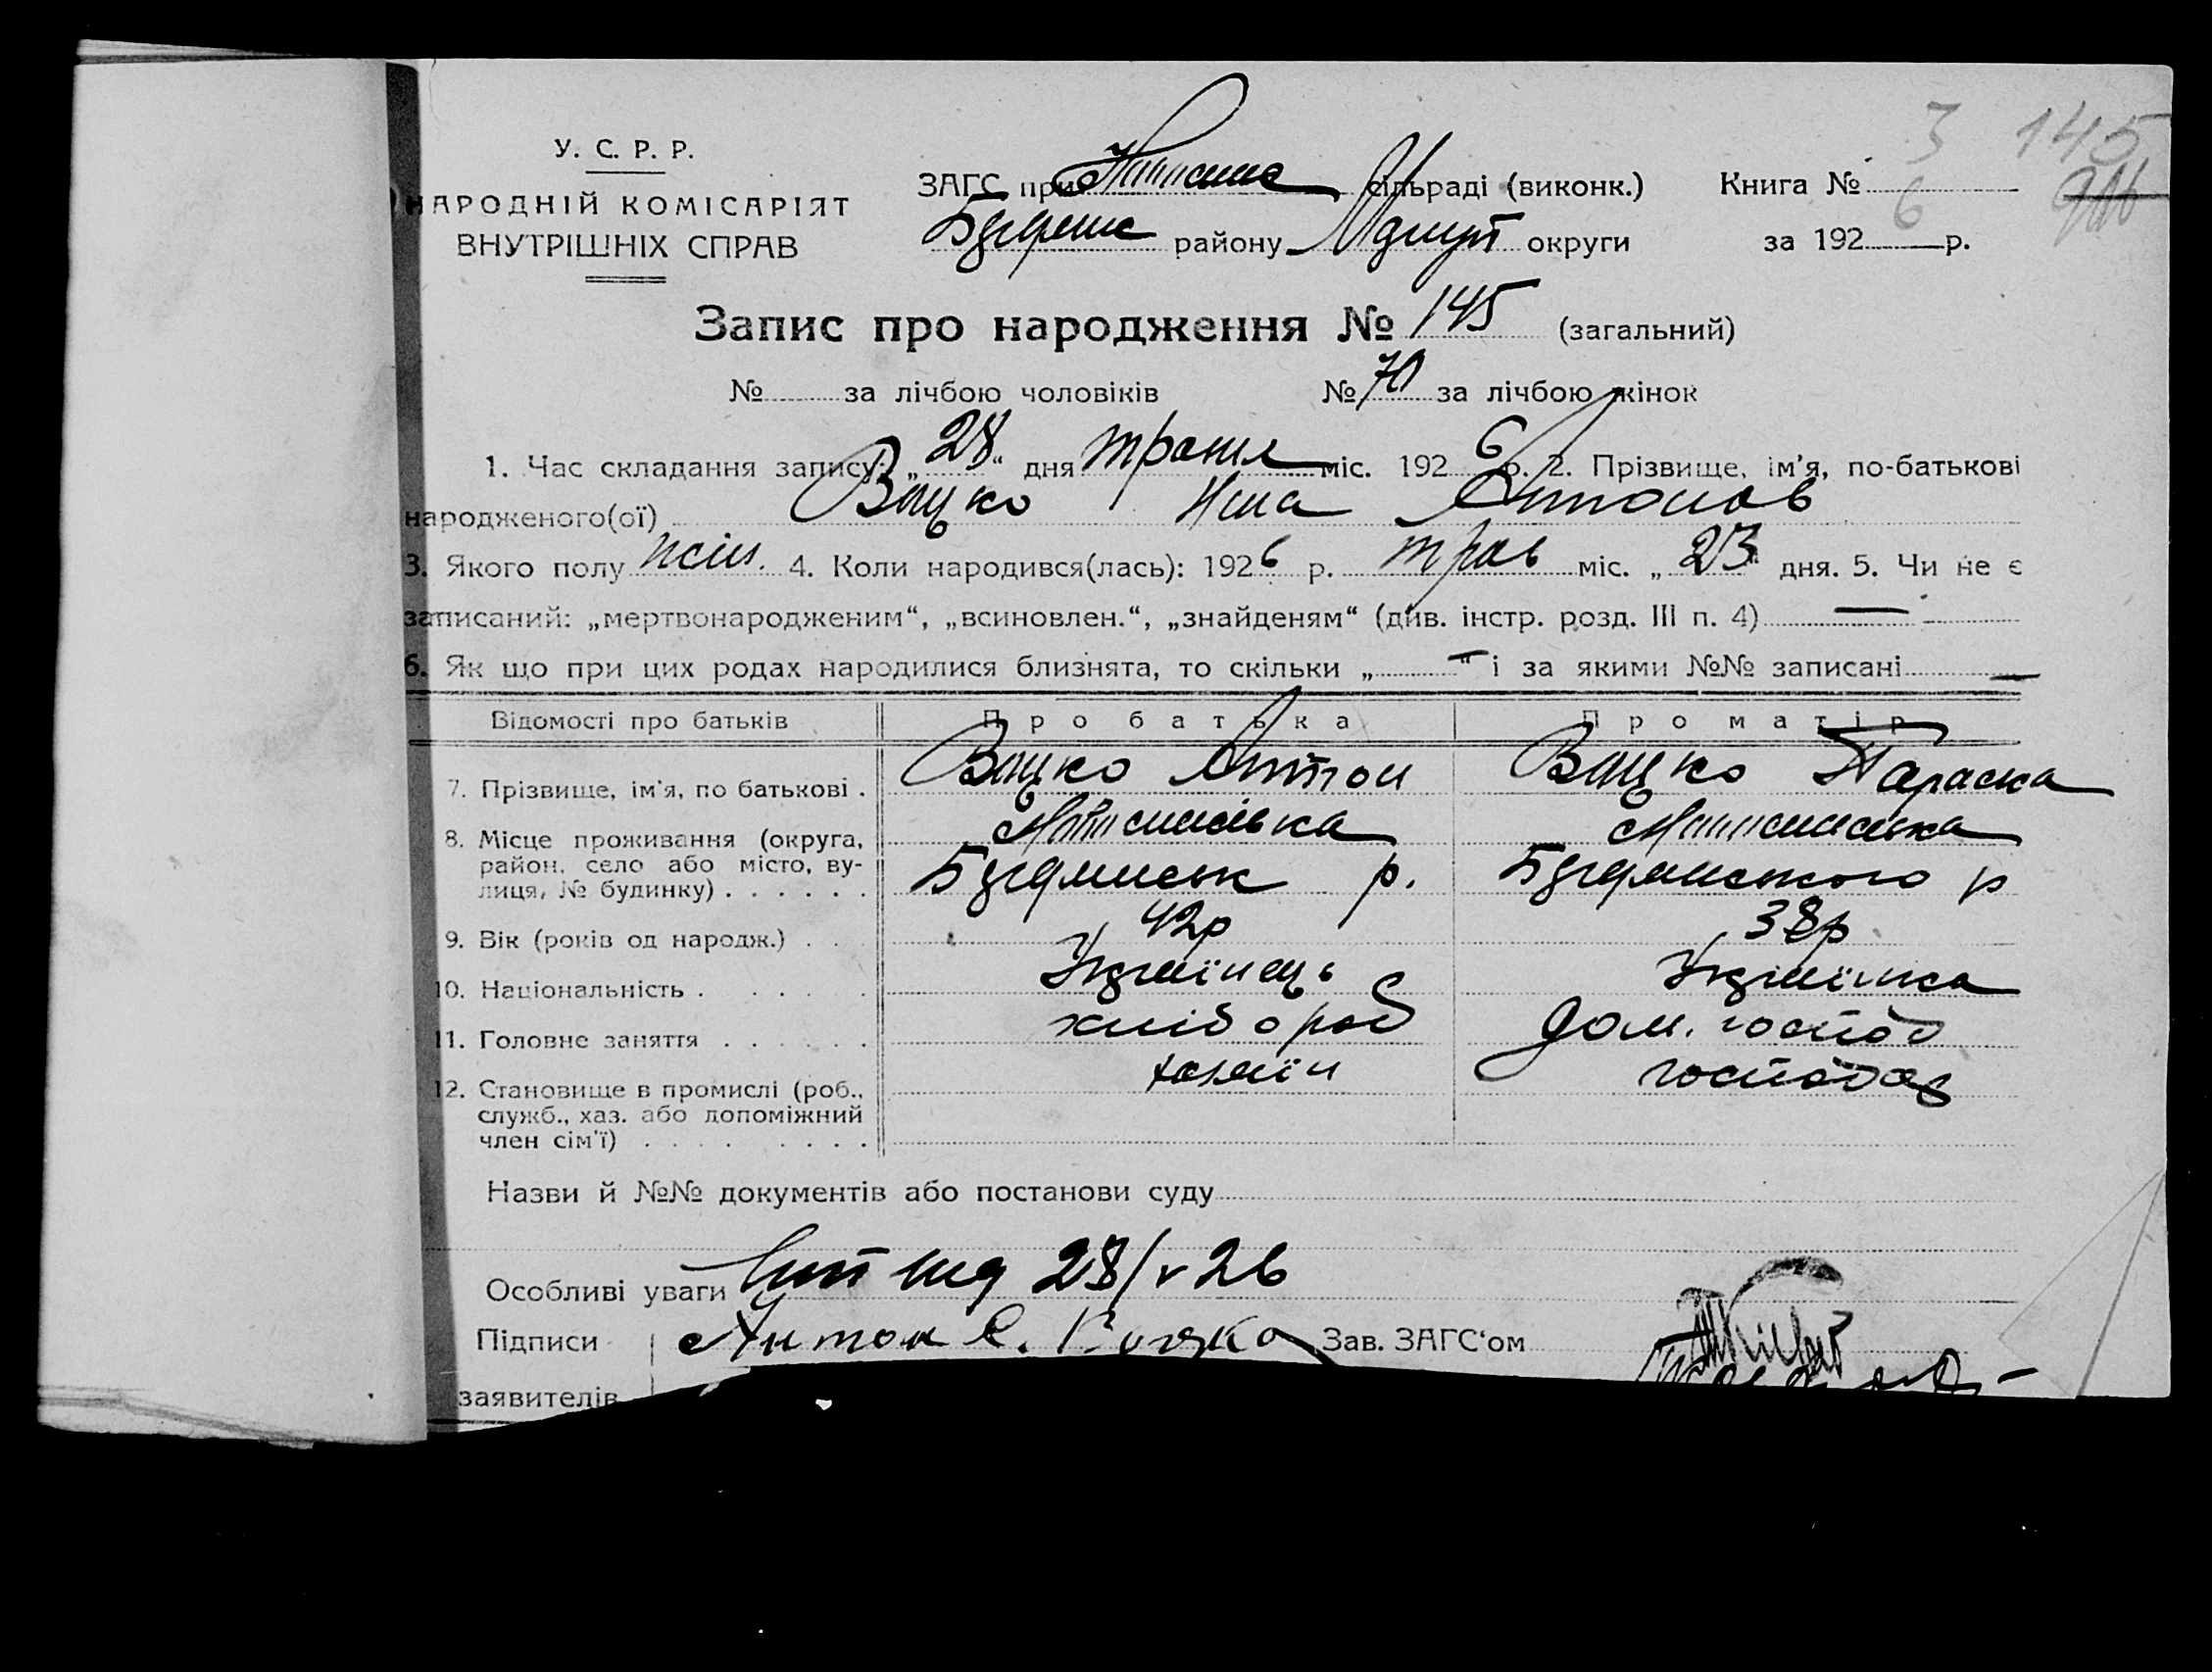 3 145
У. С. Р. Р.
НАРОДНІЙ КОМІСАРІЯТ
ВНУТРІШНІХ СПРАВ
ЗАГС при сільраді (виконк.) Книга №
району округи за 1926 р.
Запис про народження № 145 (загальний)
№ за лічбою чоловіків № 70 за лічбою жінок
1. Час складання запису: „28“ дня травня міс. 1926 р. 2. Прізвище, ім'я, по-батькові
народженого(ої) Воцко Антонов
3. Якого полу жін. 4. Коли народився(лась): 1926 р. трав міс. „23“ дня. 5. Чи не є
записаний: „мертвонародженим“, „всиновлен.“, „знайденям“ (див. інстр. розд. III п. 4) —
6. Як що при цих родах народилися близнята, то скільки „—“ і за якими №№ записані —
Відомості про батьків Про батька Про матір
7. Прізвище, ім'я, по батькові . Воцко Антон Воцко Параска
8. Місце проживання (округа,
район, село або місто, ву-
лиця, № будинку) . . . . . . р. р
9. Вік (років од народж.) . . . 42р 38р
10. Національність . . . . . Українець Українка
11. Головне заняття . . . . . . хлібороб дом. господ
12. Становище в промислі (роб.,
служб., хаз. або допоміжний
член сім'ї) . . . . . . . . . хазяїн господар
Назви й №№ документів або постанови суду
Особливі уваги 28/v 26
Підписи Антон Зав. ЗАГС'ом
заявителів